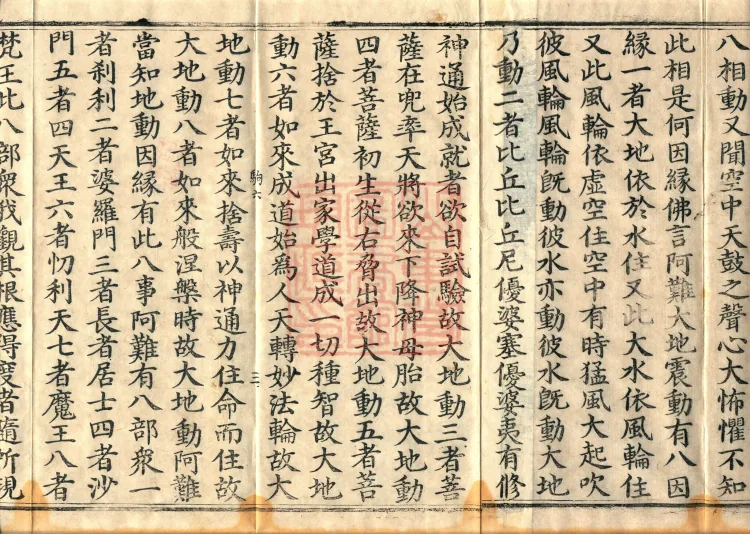 八相動又聞空中天鼓之聲心大怖懼不知
此相是何因緣佛言阿難大地震動有八因
緣一者大地依於水住又此大水依風輪住
又此風輪依虛空住空中有時猛風大起吹
彼風輪風輪旣動彼水亦動彼水旣動大地
乃動二者比丘比丘尼優婆塞優婆夷有修
神通始成就者欲自試驗故大地動三者菩
薩在兜率天將欲來下降神母胎故大地動
四者菩薩初生從右脅出故大地動五者菩
薩捨於王宮出家學道成一切種智故大地
動六者如來成道始為人天轉妙法輪故大
駒六
三
地動七者如來捨壽以神通力住命而住故
大地動八者如來般涅槃時故大地動阿難
當知地動因緣有此八事阿難有八部衆一
者刹利二者婆羅門三者長者居士四者沙
門五者四天王六者忉利天七者魔王八者
梵王此八部衆我觀其根應得度者隨所現